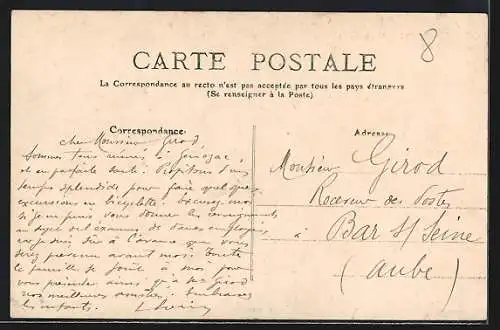 8
CARTE POSTALE
La Correspondance au recto n'est pas acceptée par tous les pays étrangers
(Se renseigner à la Poste)
Correspondance
Adresse
cher Monsieur Girod
Sommes tous réunis à
et en parfaite santé. Profitons d'un
temps splendide pour faire quelques
excursions en bicyclette.
si je puis vous donner les renseignements
au sujet de l'examen de
car je suis sûr à l'avance que vous
serez prévenu avant moi. Toute
la famille se joint à moi pour
vous présenter ainsi qu'à Me Girod
nos meilleures amitiés. Embrassez
les enfants.
Monsieur Girod
Receveur des Postes
à Bar s/ Seine
(Aube)